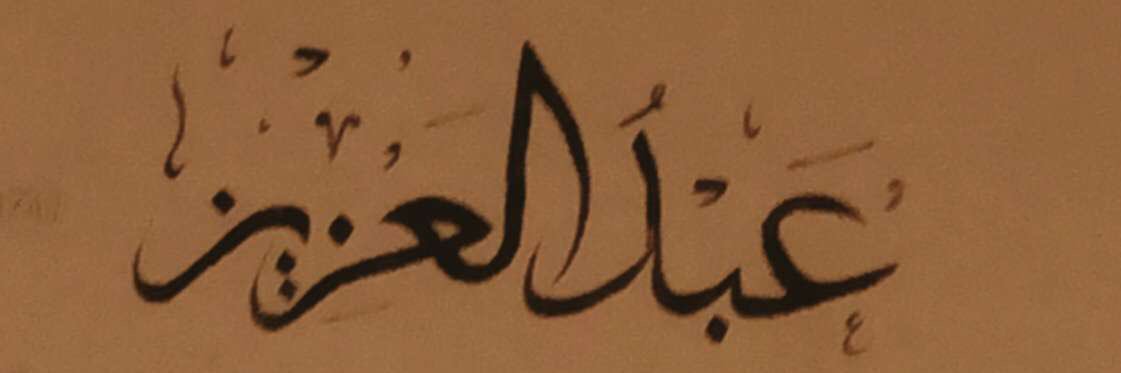 عَبْدُ الْعَزِيز